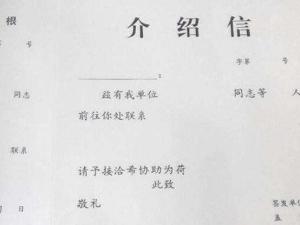 根 介绍信
字第 号
号
：
同志 兹有我单位 同志等 人
前往你处联系
联系
请予接洽希协助为荷
此致
敬礼 签发单
日 盖